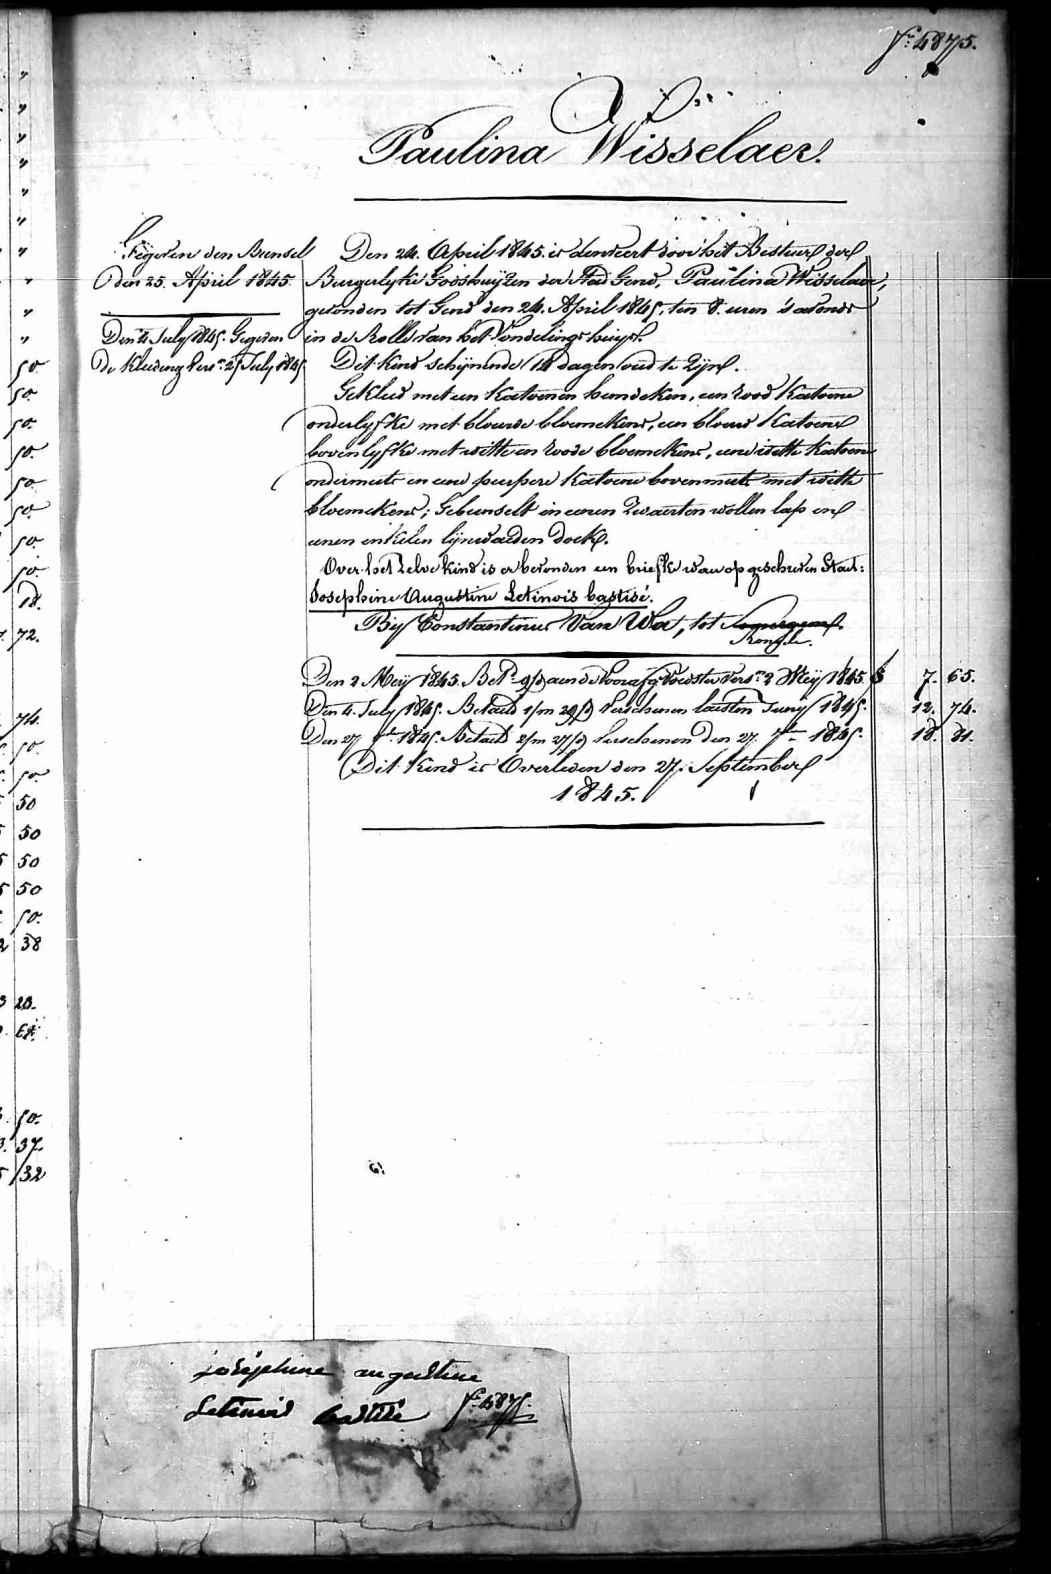 f.º 4875.
Paulina Wisselaer.
Gegeven den Bunsel
den 25. April 1845.
Den 4 July 1845. Gegeven
de kleeding vers.n 25 July 1845
Den 24. April 1845. is door het Bestuur der
Burgerlyke Godshuyzen der Stad Gend, Paulina Wisselaer,
gevonden tot Gend den 24. April 1845, ten 8. uren 's avonds
in de Rolle van het Vondelings huys.
Dit kind schynende 14 dagen oud te zyn.
Gekleed met een katoenen hemdeken, een rood katoene
onderlyfke met blauwe bloemekens, een blauw katoene
bovenlyfke met witte en roode bloemekens, eene witte katoene
ondermuts en eene purpere katoene bovenmuts met witte
bloemekens; Gebunselt in eenen zwaerten wollen lap en
eenen enkelen lynwaeden doek.
Over het zelve kind is er bevonden een briefke waer op geschreven Staet:
Josephine Augustine Letinois bastisé.
By Constantinus Van Wa, tot
Den 2 Mey 1845. Bet.d aen de Voedster vers.n 2 Mey 1845. 7. 65.
Den 4. July 1845. Betaeld 1/m 29/d verschenen laesten Juny 1845. 12. 74.
Den 27 7.bre 1845. Betaeld 2/m 27/d verschenen den 27. 7.bre 1845. 18. 31.
Dit kind is Overleden den 27. September
1845.
joséphine augustine
Letinois bastisé f.º 4875.